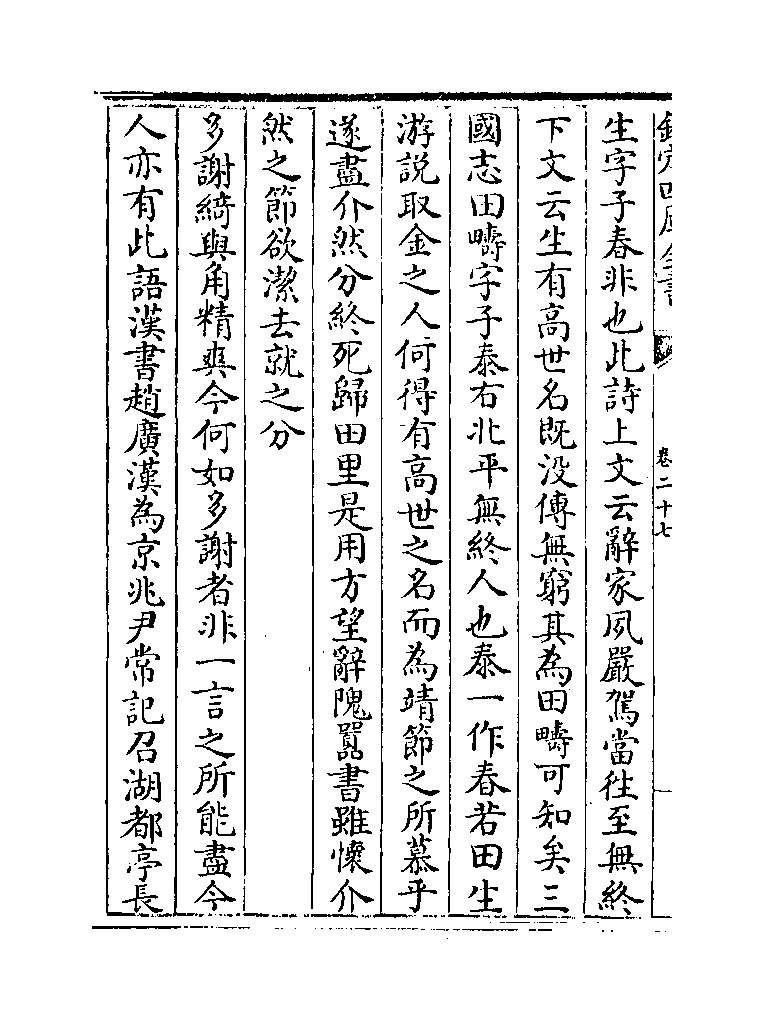 欽定四庫全書
卷二十七
生字子春非也此詩上文云辭家夙嚴駕當徃至無終
下文云生有高世名既没傳無窮其為田疇可知矣三
國志田疇字子泰右北平無終人也泰一作春若田生
游説取金之人何得有高世之名而為靖節之所慕乎
遂盡介然分終死歸田里是用方望辭隗囂書雖懷介
然之節欲潔去就之分
多謝綺與角精爽今何如多謝者非一言之所能盡今
人亦有此語漢書趙廣漢為京兆尹常記召湖都亭長